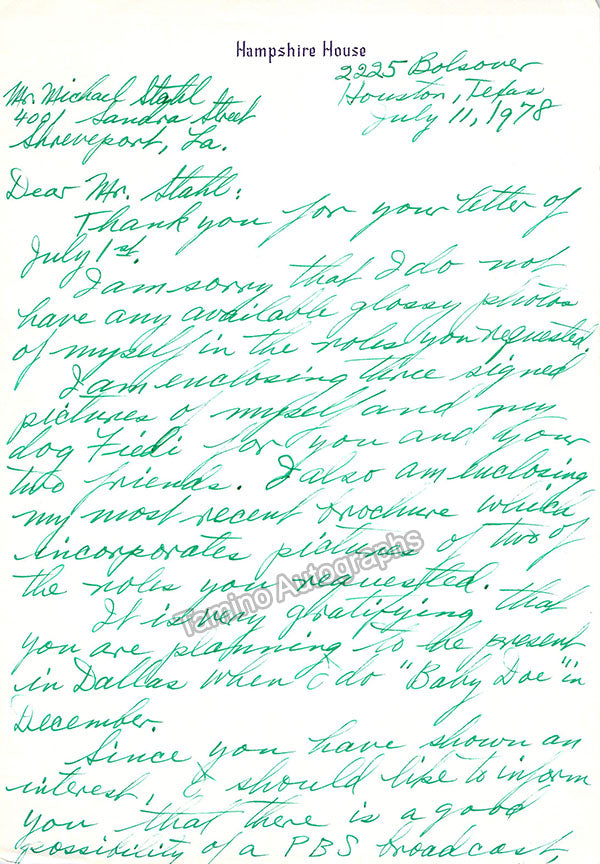 Hampshire House
2225 Bolsover
Houston, Texas
July 11, 1978
Mr. Michael Stahl
4091 Sandra Street
Shreveport, La.
Dear Mr. Stahl:
Thank you for your letter of
July 1st.
I am sorry that I do not
have any available glossy photos
of myself in the roles you requested.
I am enclosing three signed
pictures of myself and my
dog Fledi for you and your
two friends. I also am enclosing
my most recent brochure which
incorporates pictures of two of
the roles you requested.
It is very gratifying that
you are planning to be present
in Dallas when I do "Baby Doe" in
December.
Since you have shown an
interest, I should like to inform
you that there is a good
possibility of a PBS broadcast,
Tamino Autographs